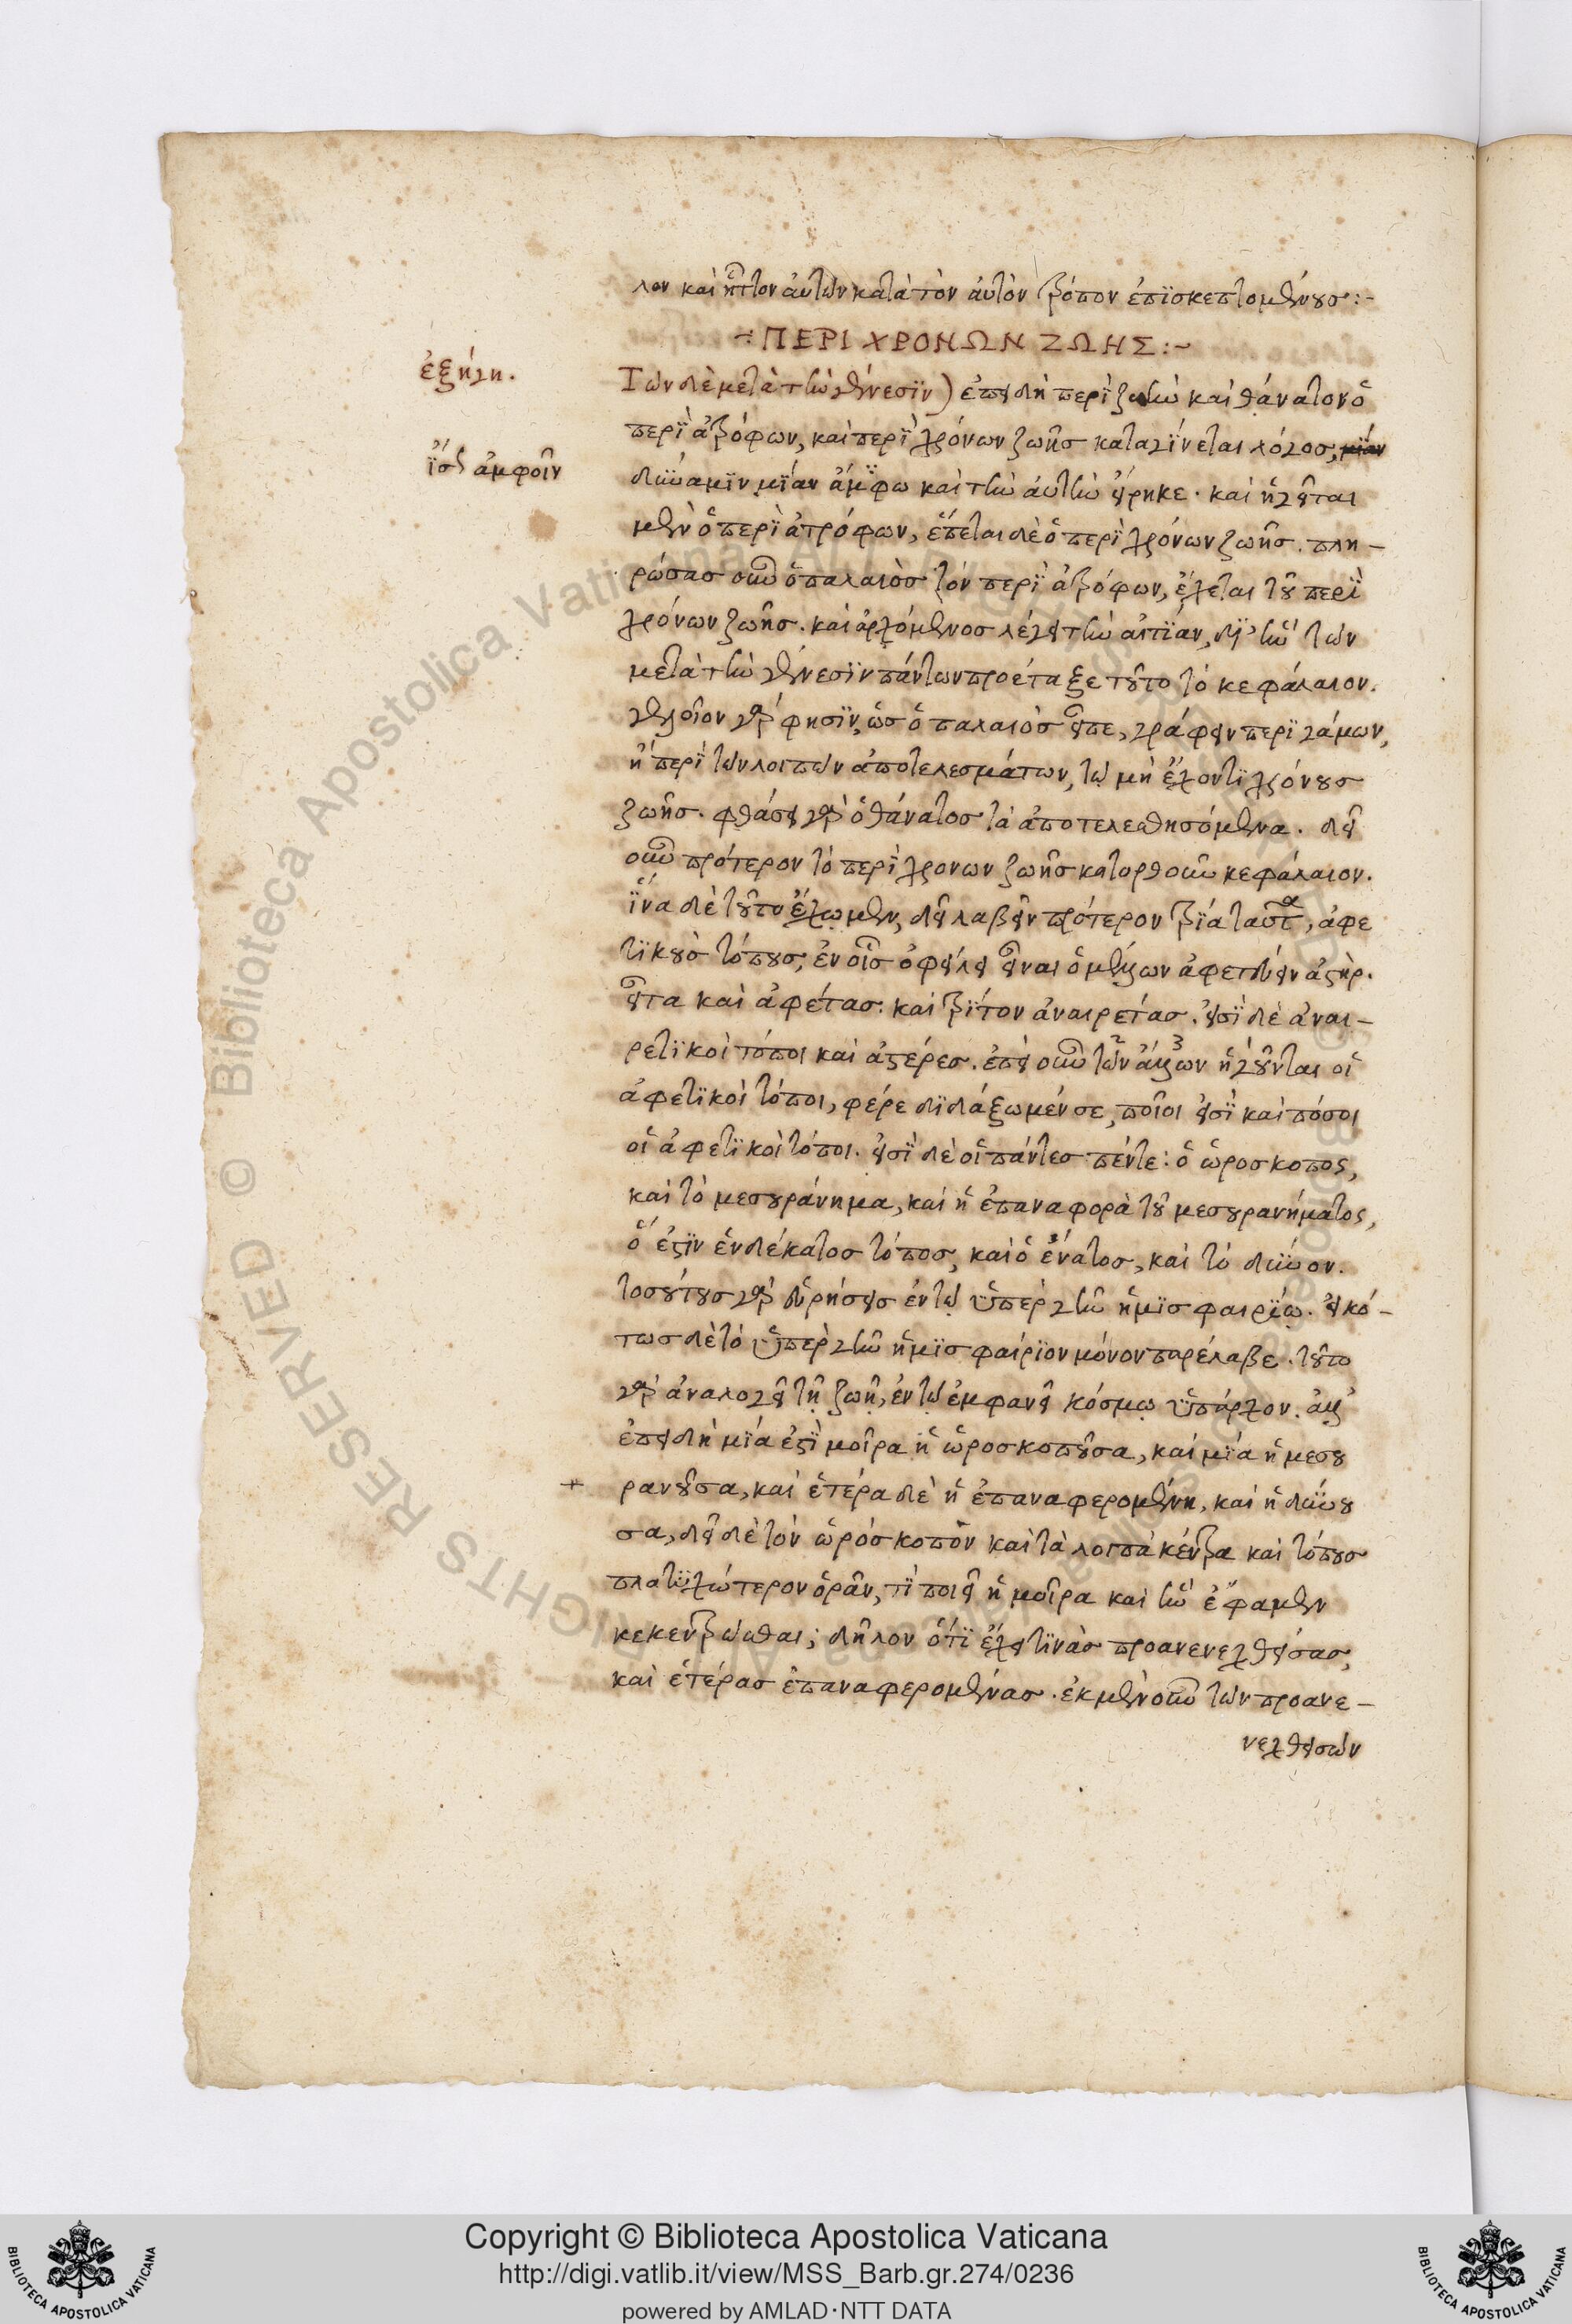 λον καὶ ἧττον αὐτῶν κατὰ τὸν αὐτὸν τρόπον ἐπϊσκεπτομένους:-
÷ ΠΕΡΙ ΧΡΟΝΩΝ ΖΩΗΣ:~
ἐξήγη.
Τῶν δὲ μετὰ τὴν γένεσϊν) ἐπειδὴ περὶ ζωὴν καὶ θάνατον ὁ
περὶ ἀτρόφων, καὶ περὶ χρόνων ζωῆσ καταγίνεται λόγοσ, μίαν
ἴσ ἀμφοῖν
δύναμϊν μίαν ἄμφω καὶ τὴν αὐτὴν εἴρηκε. καὶ ἡγεῖται
μὲν ὁ περὶ ἀτρόφων, ἕπεται δὲ ὁ περὶ χρόνων ζωῆσ. πλη-
ρώσασ οὖν ὁ παλαιὸσ τὸν περὶ ἀτρόφων, ἔχεται τοῦ περὶ
χρόνων ζωῆσ. καὶ ἀρχόμενοσ λέγει τὴν αἰτίαν, δι' ἣν τῶν
μετὰ τὴν γένεσϊν πάντων προέταξε τοῦτο τὸ κεφάλαιον.
γελοῖον γάρ φησϊν, ὡσ ὁ παλαιὸσ εἶπε, γράφειν περὶ γάμων,
ἢ περὶ τῶν λοιπῶν ἀποτελεσμάτων, τῷ μὴ ἔχοντι χρόνουσ
ζωῆσ. φθάσει γὰρ ὁ θάνατοσ τὰ ἀποτελεσθησόμενα. δεῖ
οὖν πρότερον τὸ περὶ χρονων ζωῆσ κατορθοῦν κεφάλαιον.
ἵνα δὲ τοῦτο ἔχωμεν, δεῖ λαβεῖν πρότερον τρία ταῦτα, ἀφε
τϊκοὺσ τόπουσ, ἐν οἷσ ὀφείλει εἶναι ὁ μέλλων ἀφετεύειν ἀστὴρ.
εἶτα καὶ ἀφέτασ. καὶ τρίτον ἀναιρετάσ. εἰσὶ δὲ ἀναι-
ρετϊκοὶ τόποι καὶ ἀστέρεσ. ἐπεὶ οὖν τῶν ἄλλων ἡγοῦνται οἱ
ἀφετϊκοὶ τόποι, φέρε διδάξωμέν σε, ποῖοι εἰσὶ καὶ πόσοι
οἱ ἀφετϊκοὶ τόποι. εἰσὶ δὲ οἱ πάντεσ πέντε: ὁ ὡροσκοπος,
καὶ τὸ μεσουράνημα, καὶ ἡ ἐπαναφορὰ τοῦ μεσουρανήματος,
ὅ ἐστϊν ἑνδέκατοσ τόποσ, καὶ ὁ ἔνατοσ, καὶ τὸ δῦνον.
τοσούτουσ γὰρ εὑρήσεισ ἐν τῷ ὑπὲρ γῆν ἡμϊσφαιρίῳ. εἰκό-
τωσ δὲ τὸ ὑπὲρ γῆν ἡμϊσφαίριον μόνον παρέλαβε. τοῦτο
γὰρ ἀναλογεῖ τῇ ζωῇ, ἐν τῷ ἐμφανεῖ κόσμῳ ὑπάρχον. ἀλλ'
ἐπειδὴ μία ἐστὶ μοῖρα ἡ ὡροσκοποῦσα, καὶ μία ἡ μεσου
ρανοῦσα, καὶ ἑτέρα δὲ ἡ ἐπαναφερομένη, καὶ ἡ δύνου
σα, δεῖ δὲ τὸν ὡρόσκοπον καὶ τὰ λοιπὰ κέντρα καὶ τόπουσ
πλατϋχώτερον ὁρᾶν, τί ποιεῖ ἡ μοῖρα καὶ ἣν ἔφαμεν
κεκεντρῶσθαι; δῆλον ὅτϊ ἔχει τϊνὰσ προανενεχθείσασ,
καὶ ἑτέρασ ἐπαναφερομένασ. ἐκ μὲν οὖν τῶν προανε-
νεχθεισῶν
Copyright © Biblioteca Apostolica Vaticana
http://digi.vatlib.it/view/MSS_Barb.gr.274/0236
powered by AMLAD·NTT DATA